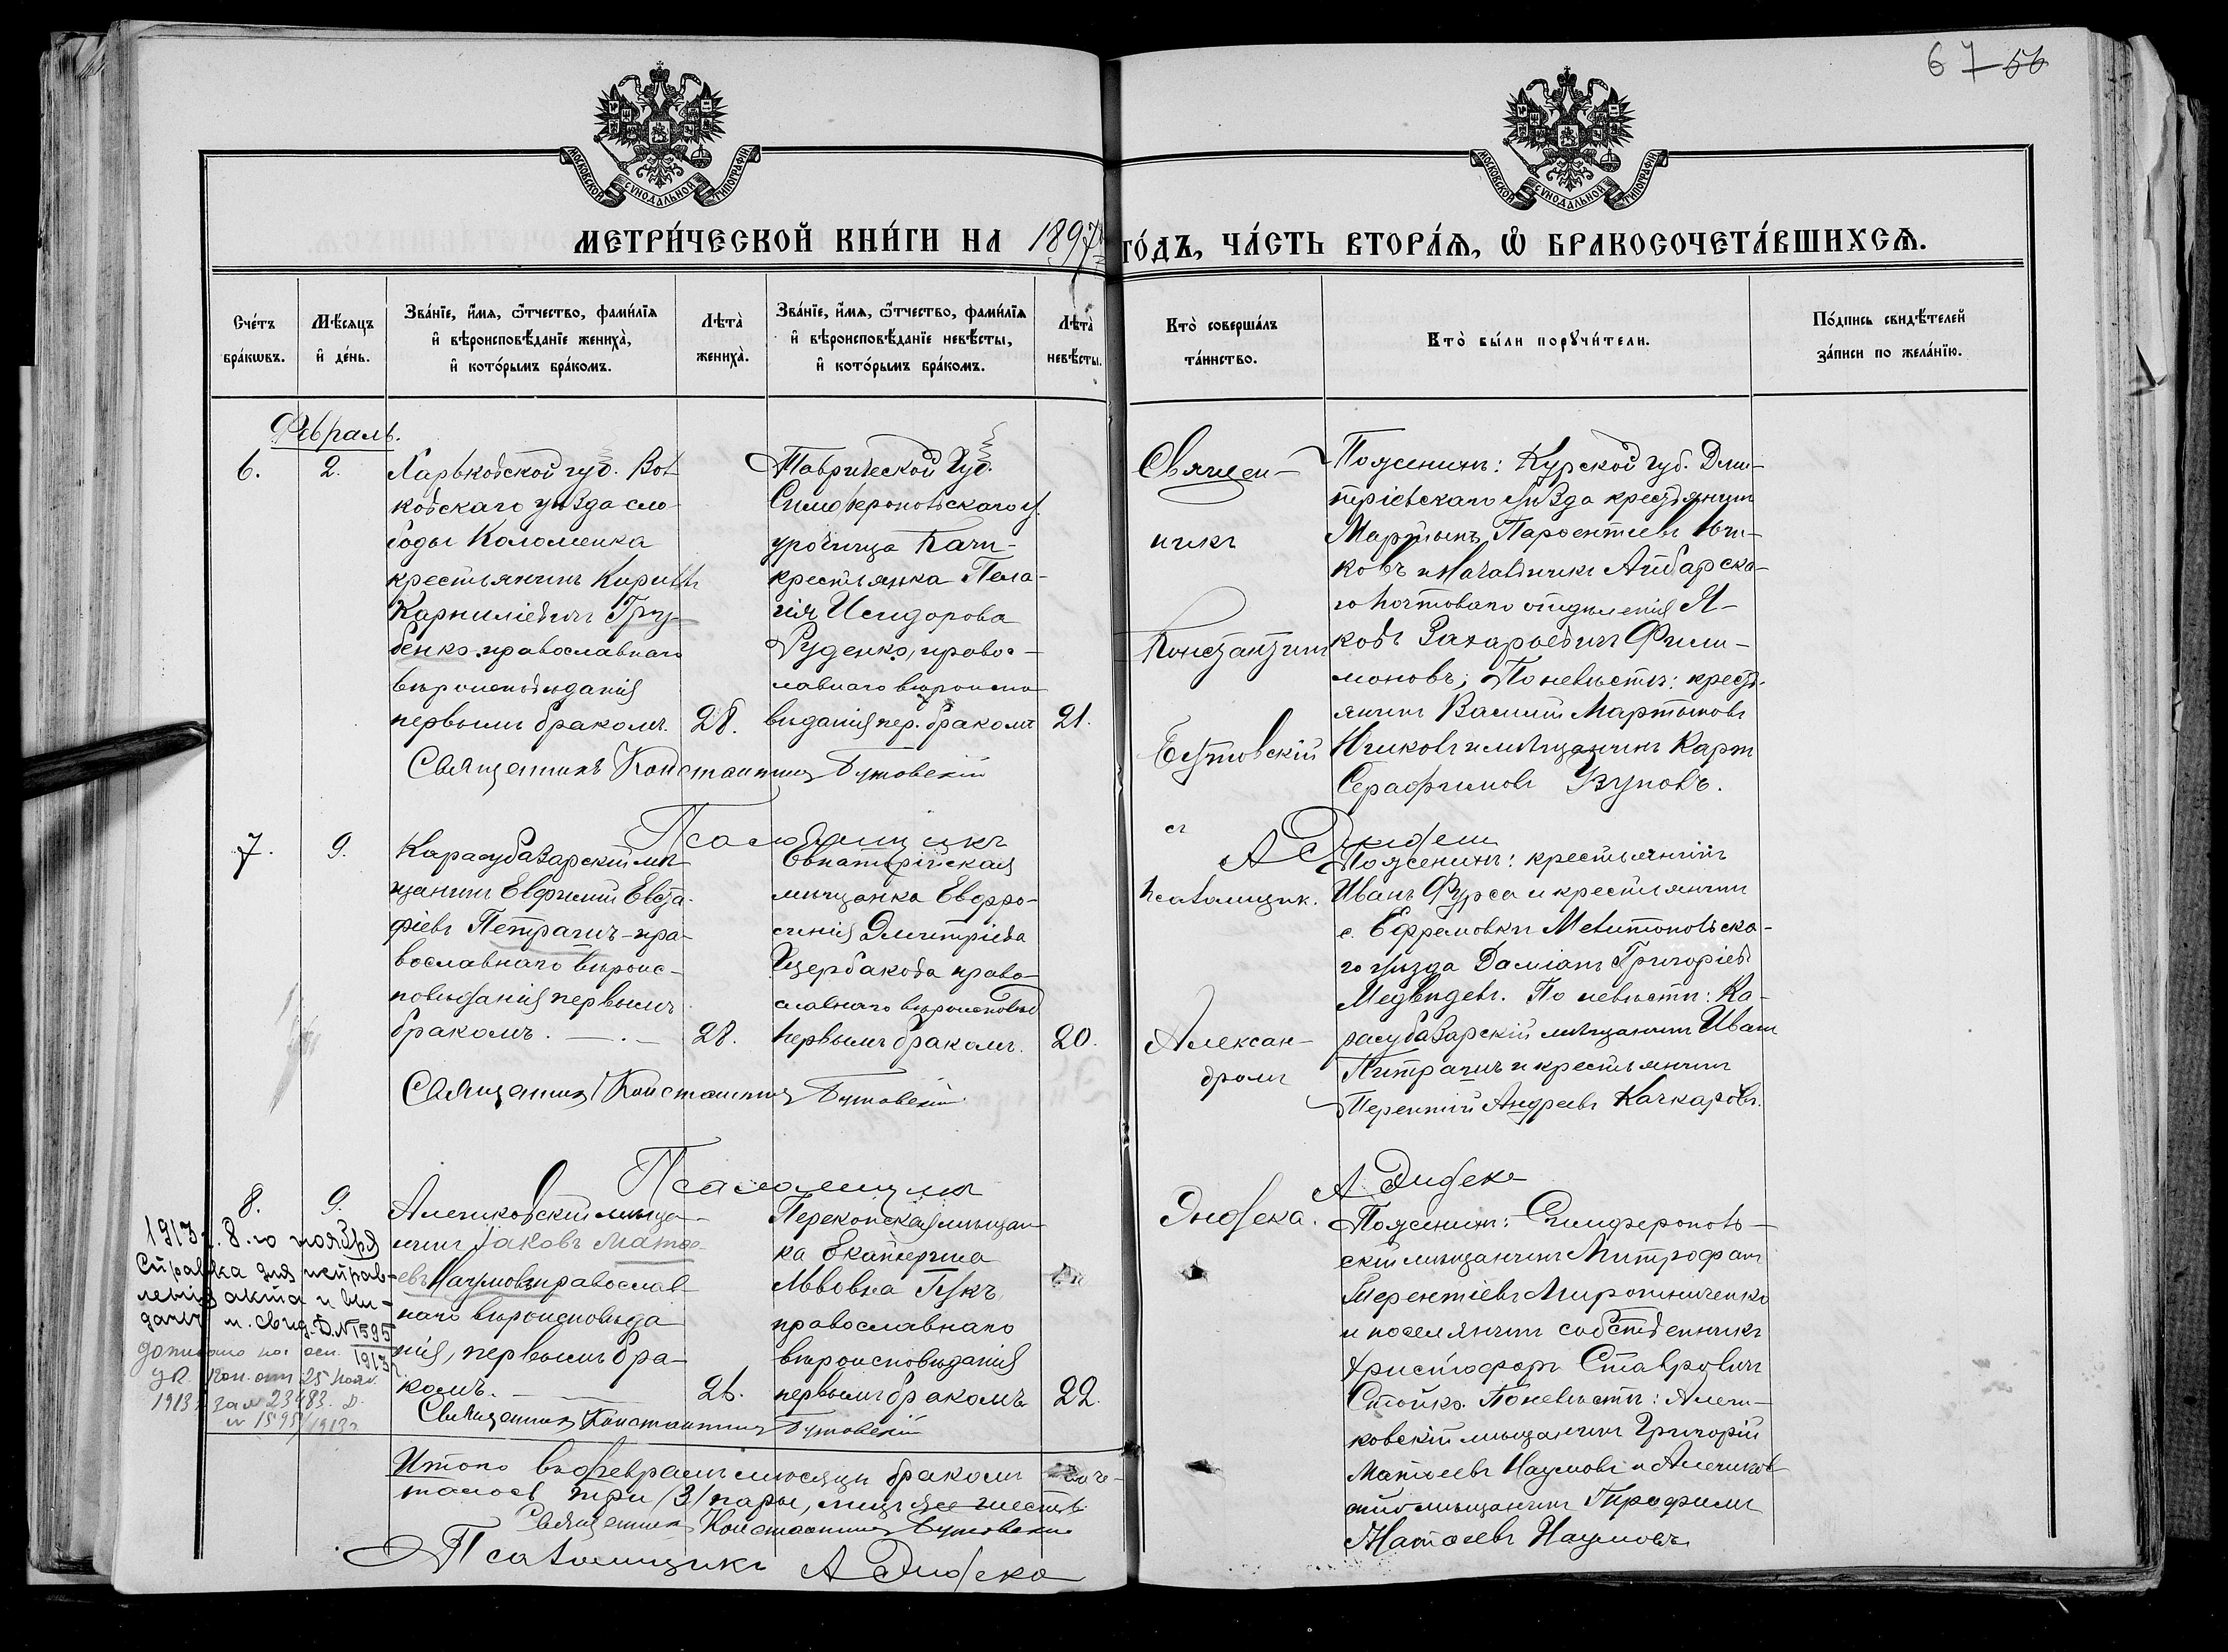 67 56
МОСКОВСКОЙ СѴНОДАЛЬНОЙ ТИПОГРАФІИ
МОСКОВСКОЙ СѴНОДАЛЬНОЙ ТИПОГРАФІИ
МЕТРИ́ЧЕСКОЙ КНИ́ГИ НА 1897
ГО́ДЪ, ЧА́СТЬ ВТОРА́Я, Ѡ БРАКОСОЧЕТА́ВШИХСЯ.
Сче́тъ
бра́кѡвъ.
Мѣ́сяцъ
и҆ де́нь.
Зва́нїе, и҆́мя, ѻ҆́тчество, фами́лїя
и҆ вѣроисповѣ́данїе жениха̀,
и҆ кото́рымъ бра́комъ.
Лѣта̀
жениха̀.
Зва́нїе, и҆́мя, ѻ҆́тчество, фами́лїя
и҆ вѣроисповѣ́данїе невѣ́сты,
и҆ кото́рымъ бра́комъ.
Лѣта̀
невѣ́сты.
Кто̀ соверша́лъ
та́инство.
Кто̀ бы́ли порꙋчи́тели.
По́дпись свидѣ́телей
за́писи по жела́нїю.
Февраль.
6.
2.
Харьковской губ. Вол
ковскаго уѣзда сло
боды Коломенка
крестьянинъ Кириллъ
Карниліевичъ Гру
бенко православнаго
вѣроисповѣданія
первымъ бракомъ.
28.
Таврической Губ.
Симферопольскаго у.
урочища Качи-
крестьянка Пела-
гія Исидорова
Руденко, правос-
лавнаго вѣроиспо
вѣданія пер. бракомъ
21.
Священникъ Константинъ Бутовскій
Псаломщикъ
А Дидека
Священ-
никъ
Константинъ
Бутовскій
съ
псаломщик.
Алексан-
дромъ
Дидека.
По женихѣ: Курской губ. Дми-
тріевскаго уѣзда крестьянинъ
Мартынъ Парфентіевъ
ковъ и Начальникъ Айбарска-
го почтоваго отдѣленія Я-
ковъ Захарьевичъ Фили-
моновъ; По невѣстѣ: крест-
янинъ Василій Мартыновъ
и мѣщанинъ Карпъ
Серафимовъ Узуновъ.
7.
9.
Карасубазарскій мѣ
щанинъ Евфимій Евста
фіевъ Петрагичъ-пра-
вославнаго вѣроис-
повѣданія первымъ
бракомъ.
28.
Евпаторійская
мѣщанка Евфро-
синія Димитріева
Щербакова право-
славнаго вѣроисповѣд
первымъ бракомъ.
20.
Священникъ Константинъ Бутовскій
Псаломщикъ
А Дидека
По женихѣ: крестьянинъ
Иванъ Фурса и крестьянинъ
с. Ефремовки Мелитопольска-
го уѣзда Даміанъ Григоріевъ
Медвѣдевъ. По невѣстѣ: Ка-
расубазарскій мѣщанинъ Иванъ
Петрагичъ и крестьянинъ
Терентій Андреевъ Качкаровъ.
8.
9.
Алешковскій мѣща-
нинъ Іаковъ Матѳе-
евъ Наумовъ православ
наго вѣроисповѣда
нія, первымъ бра-
комъ.
26.
Перекопская мѣщан
ка Екатерина
Львовна Гукъ
православнаго
вѣроисповѣданія
первымъ бракомъ
22.
Священникъ Константинъ Бутовскій
По женихѣ: Симферополь-
скій мѣщанинъ Митрофанъ
Терентіевъ Мирошниченко
и поселянинъ собственникъ
Христофоръ Ставровичъ
Стойко. По невѣстѣ: Алеш-
ковскій мѣщанинъ Григорій
Матѳеевъ Наумовъ и Алешков
скій мѣщанинъ Трофимъ
Матѳеевъ Наумовъ
1913 г. 8-го ноября
Справка для исправ-
ленія акта и вы-
дачи м. свид. Д. №1595
1913
1913 г. за № 23483. Д.
№ 1595/1913 г.
Итого въ февралѣ мѣсяцѣ бракомъ соче-
талось три /3/ пары, лицъ шесть.
Священникъ Константинъ Бутовскій
Псаломщикъ А Дидека